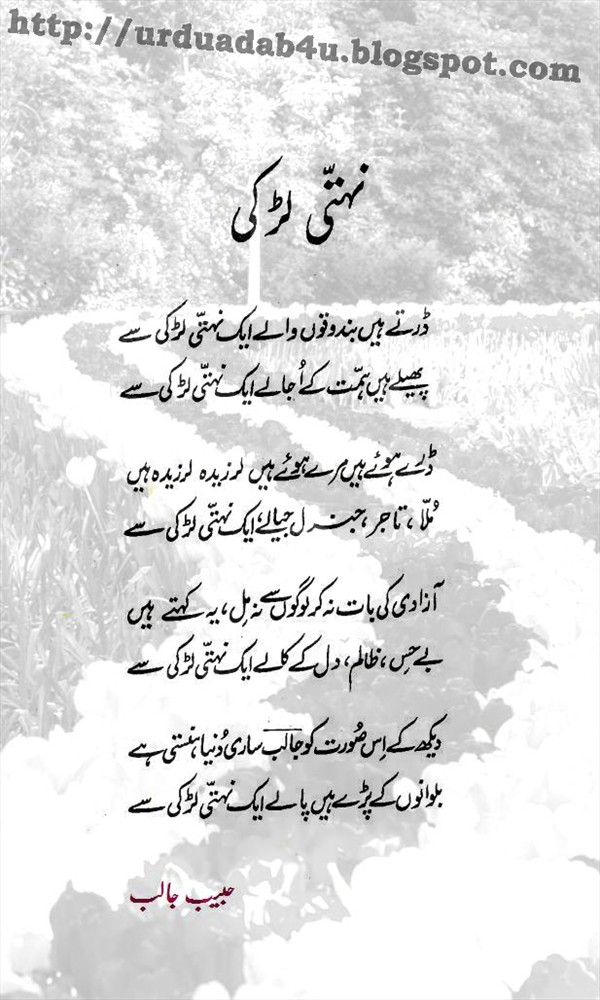 http://urduadab4u.blogspot.com
نہتّی لڑکی
ڈرتے ہیں بندوقوں والے ایک نہتّی لڑکی سے
پھیلے ہیں ہمّت کے اُجالے ایک نہتّی لڑکی سے
ڈرے ہوئے ہیں مرے ہوئے ہیں لرزیدہ لرزیدہ ہیں
مُلّا، تاجر، جنرل جیالے، ایک نہتّی لڑکی سے
آزادی کی بات نہ کر لوگوں سے نہ مِل، یہ کہتے ہیں
بے حِس، ظالم، دل کے کالے ایک نہتّی لڑکی سے
دیکھ کے اِس صُورت کو جالبؔ ساری دُنیا ہنستی ہے
بلوانوں کے پڑے ہیں پالے ایک نہتّی لڑکی سے
حبیب جالب